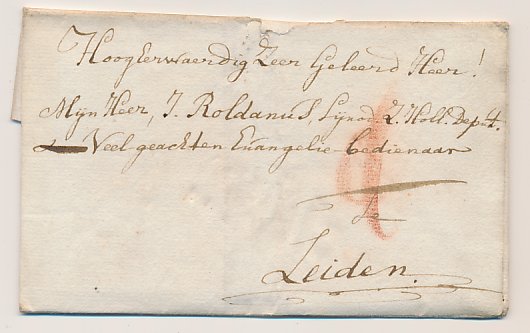 HoogEerwaerdig Zeer Geleerd Heer!
Mijn Heer, J. Roldanus, Synod. Z. Holl. Deput.
Veel geachten Euangelie-bedienaar
te
Leiden.